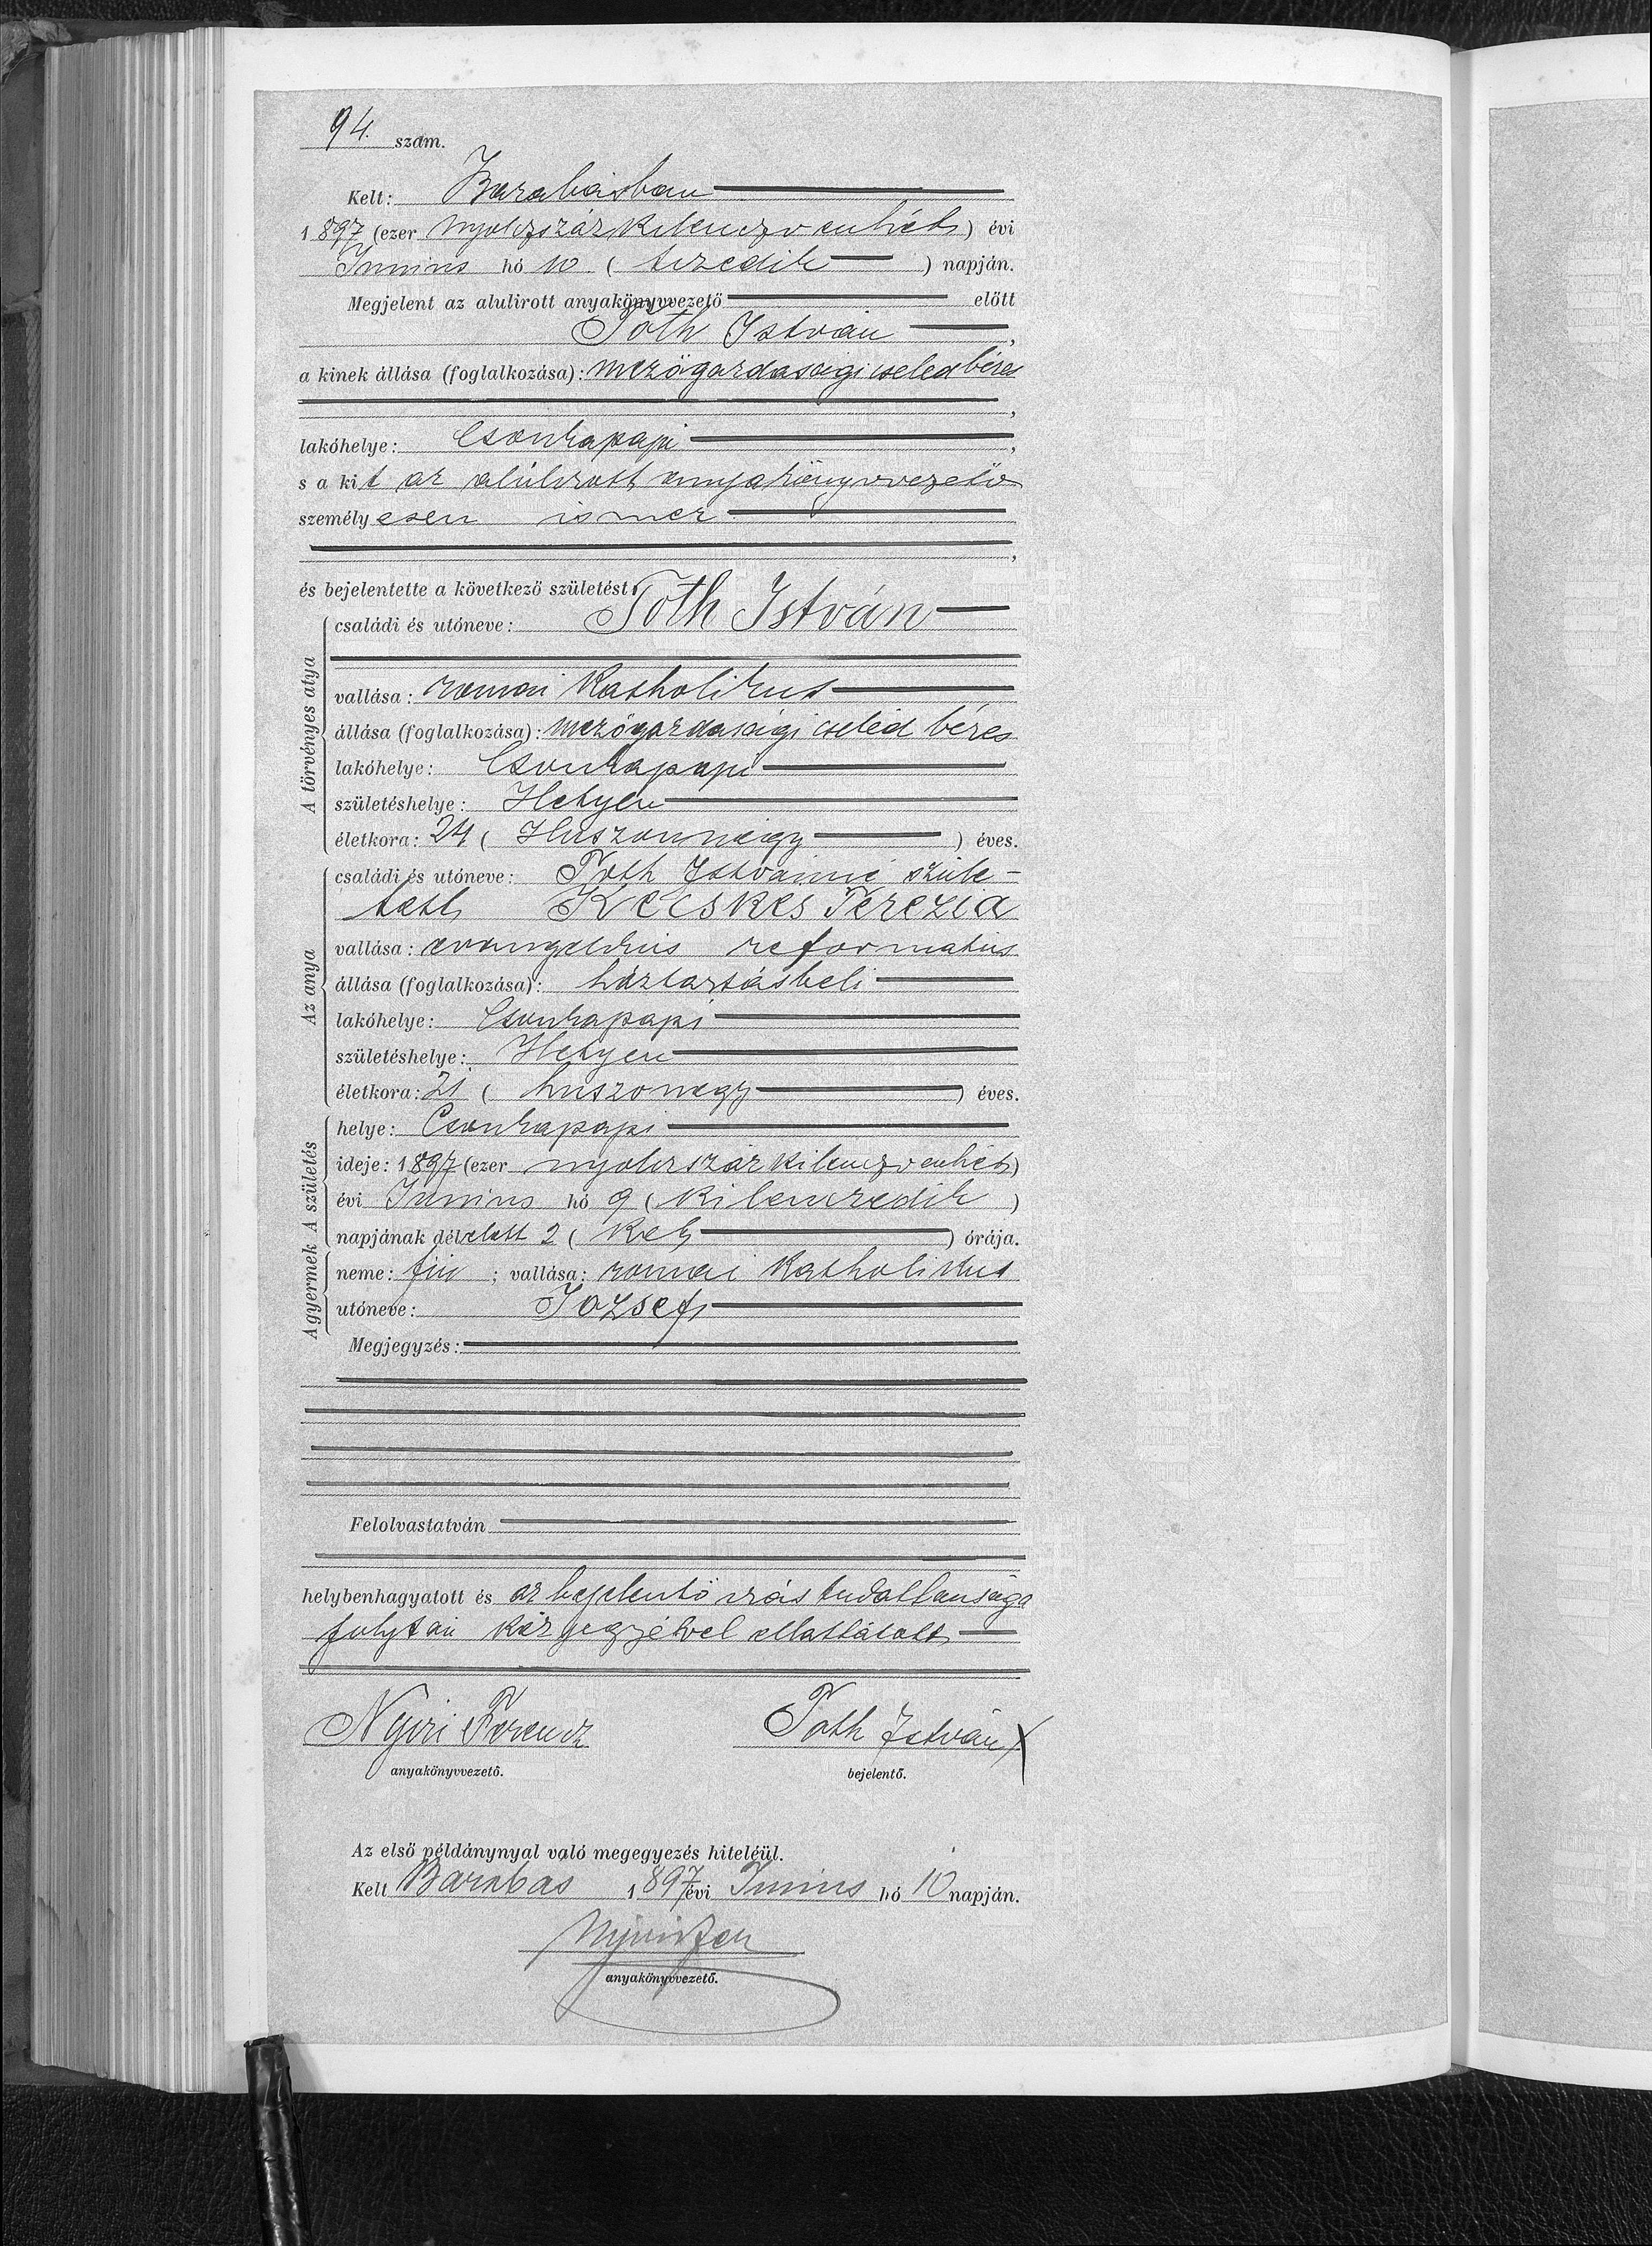 94. szám.
Kelt: Barabásban
1897 (ezer nyolczszázkilenczvenhét) évi
Junius hó 10 (tizedik) napján.
Megjelent az alulirott anyakönyvvezető előtt
Tóth István,
a kinek állása (foglalkozása): mezőgazdasági cseled béres
lakóhelye: Csonkapapi,
s a kit az alúlirott anyakönyvvezető
személyesen ismer
és bejelentette a következő születést:
A törvényes atya
családi és utóneve: Tóth István
vallása: romai Katholikus
állása (foglalkozása): mezőgazdasági cseléd béres
lakóhelye: Csonkapapi
születéshelye: Hetyen
életkora: 24 (Huszonnégy) éves.
Az anya
családi és utóneve: Toth Istvánné szüle-
tett Kecskes Terezia
vallása: evangelikus reformatus
állása (foglalkozása): háztartásbeli
lakóhelye: Csonkapapi
születéshelye: Hetyen
életkora: 21 (huszonegy) éves.
A születés
helye: Csonkapapi
ideje: 1897 (ezer nyolczszázkilenczvenhét)
évi Junius hó 9 (kilenczedik)
napjának délelőtt 2 (két) órája.
A gyermek
neme: fiú; vallása: romai Katholikus
utóneve: Jozsef
Megjegyzés:
Felolvastatván
helybenhagyatott és az bejelentő irás tudatlansága
folytán kézjegyével ellattatott
Nyiri Ferencz Toth István X
anyakönyvvezető. bejelentő.
Az első példánynyal való megegyezés hiteléül.
Kelt Barabas 1897 évi Junius hó 10 napján.
Nyiri Fer
anyakönyvvezető.